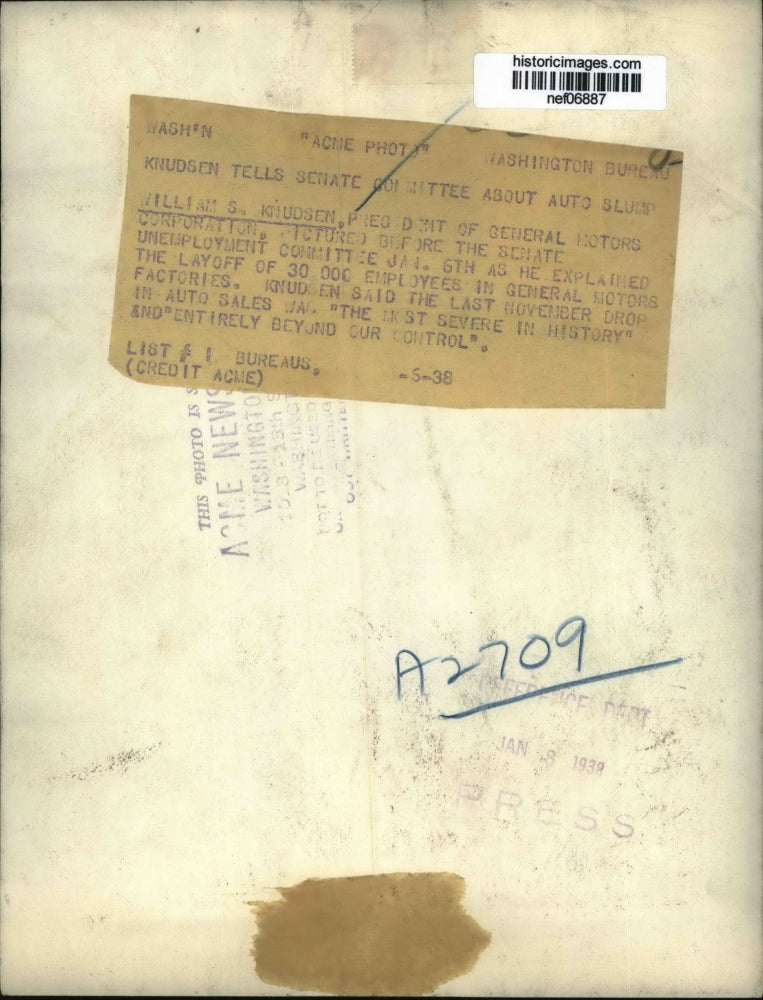 historicimages.com
nef06887
WASH'N "ACME PHOTO" WASHINGTON BUREAU
KNUDSEN TELLS SENATE COMMITTEE ABOUT AUTO SLUMP
WILLIAM S. KNUDSEN, PRES DENT OF GENERAL MOTORS
CORPORATION, PICTURED BEFORE THE SENATE
UNEMPLOYMENT COMMITTEE JAN. 6TH AS HE EXPLAINED
THE LAYOFF OF 30 000 EMPLOYEES IN GENERAL MOTORS
FACTORIES. KNUDSEN SAID THE LAST NOVEMBER DROP
IN AUTO SALES WAS "THE MOST SEVERE IN HISTORY"
AND "ENTIRELY BEYOND OUR CONTROL".
LIST BUREAUS,
(CREDIT ACME) -6-38
THIS PHOTO IS S
ACME NEWS
WASHINGTO
NOT TO BE USED
A2709
REFERENCE DEPT
JAN 8 1938
PRESS